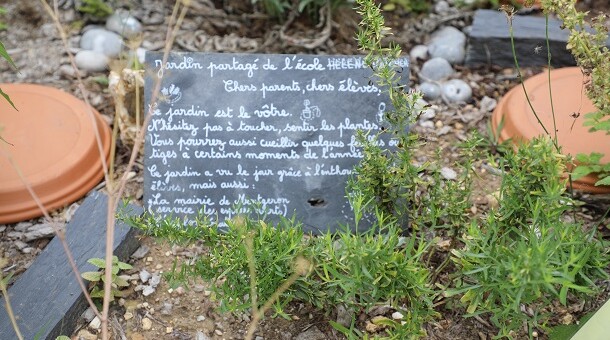 Jardin partagé de l'école HÉLÈNE
Chers parents, chers élèves,
Ce jardin est le vôtre.
N'hésitez pas à toucher, sentir les plantes.
Vous pourrez aussi cueillir quelques feuilles ou
tiges à certains moments de l'année
Ce jardin a vu le jour grâce à
élèves, mais aussi:
La mairie de
service des espaces verts)